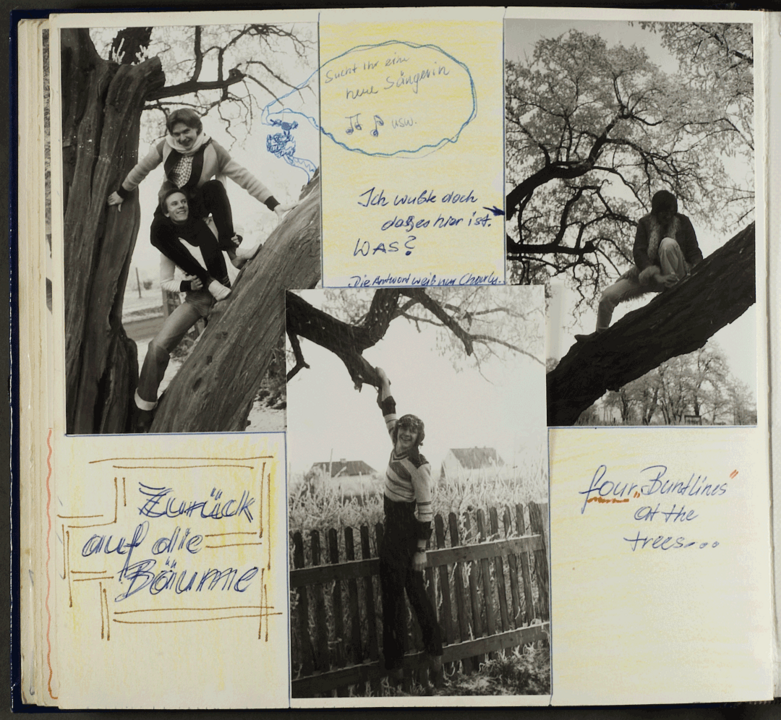 Sucht Ihr eine
neue Sängerin
usw.
Ich wußte doch
daß es hier ist.
WAS?
Die Antwort weiß nur
Zurück
auf die
Bäume
four "Bundlines"
at the
trees...